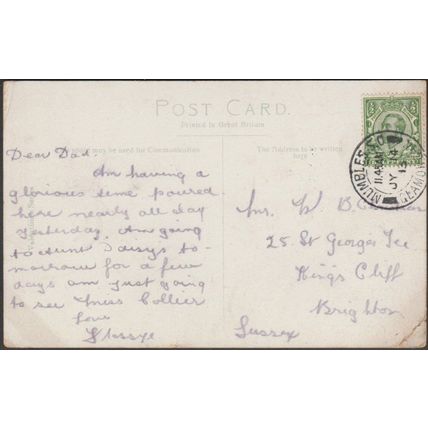 POST CARD.
Printed in Great Britain
may be used for Communication
The Address to be written
here
Dear Dad.
Am having a
glorious time poured
here nearly all day
yesterday. Am going
to Aunt Daisys to-
morrow for a few
days am just going
to see Miss Collier
Love
Mr. W B.
25. St Georges Tce
Kings Cliff
Brighton
Sussex
MUMBLES
11.45AM
JY
13
GLAMORGAN